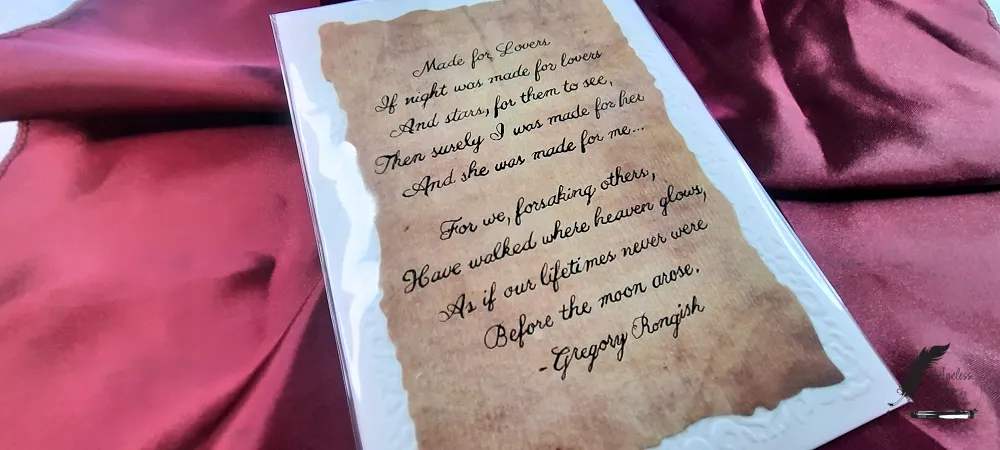 Made for Lovers
If night was made for lovers
And stars, for them to see,
Then surely I was made for her
And she was made for me...
For we, forsaking others,
Have walked where heaven glows,
As if our lifetimes never were
Before the moon arose.
-Gregory Rongish
Ageless